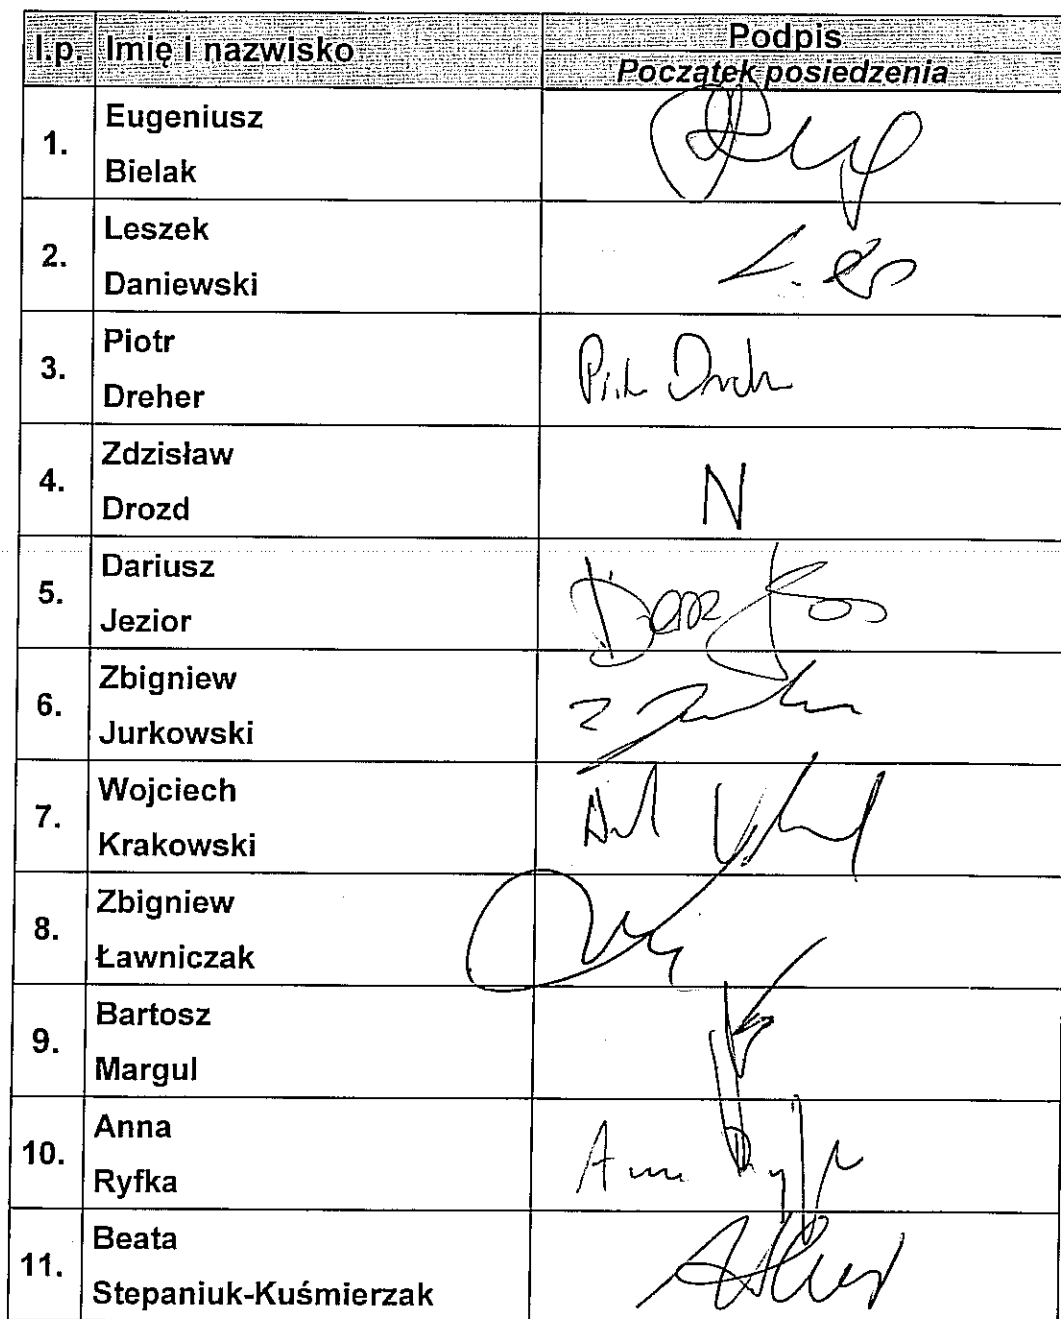 l.p. Imię i nazwisko Podpis
Początek posiedzenia
1. Eugeniusz
Bielak
2. Leszek
Daniewski
3. Piotr
Dreher
4. Zdzisław
Drozd N
5. Dariusz
Jezior
6. Zbigniew
Jurkowski
7. Wojciech
Krakowski
8. Zbigniew
Ławniczak
9. Bartosz
Margul
10. Anna
Ryfka
11. Beata
Stepaniuk-Kuśmierzak